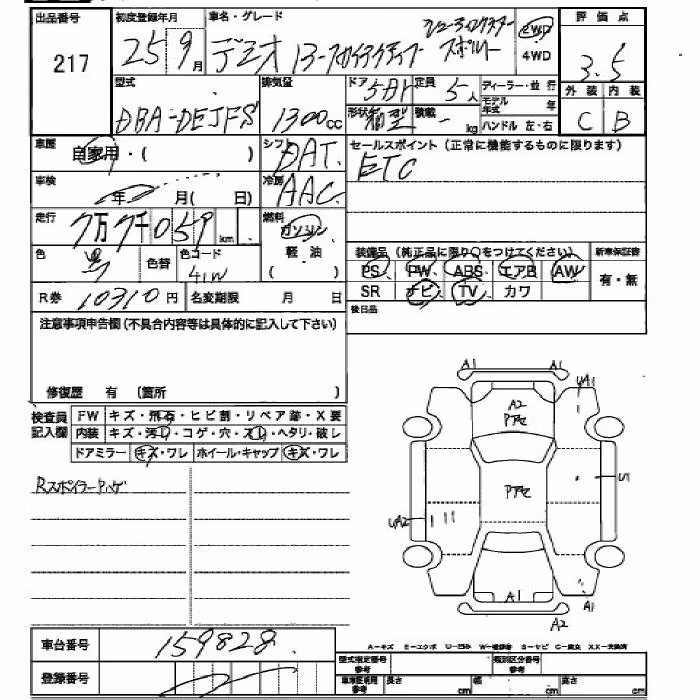 出品番号
217
初度登録年月
25 9月
車名・グレード
デミオ 13-スカイアクティブ
スポルト
2WD
4WD
評価点
3.5
外装 内装
C B
型式
DBA-DEJFS
排気量
1300cc
ドア 5ドア 定員 5人
形状 箱型 積載 - kg
ディーラー・並行
モデル年式 年
ハンドル 左・右
車歴
自家用・( )
シフト
DAT
セールスポイント(正常に機能するものに限ります)
ETC
車検
年 月( 日)
冷房
AAC
走行
9万9千059km
燃料
ガソリン
軽油
( )
色
黒
色替
色コード
41W
装備品(純正品に限り○をつけてください)
新車保証書
PS PW ABS エアB AW
SR ナビ TV カワ
有・無
R券 10310円
名変期限 月 日
後日品
注意事項申告欄(不具合内容等は具体的に記入して下さい)
修復歴 有 (箇所 )
検査員記入欄
FW キズ・飛石・ヒビ割・リペア跡・X要
内装 キズ・汚れ・コゲ・穴・スレ・ヘタリ・破レ
ドアミラー キズ・ワレ ホイール・キャップ キズ・ワレ
Rスポイラー Pハゲ
A1 A1
UA1
A2
Pアセ
Pアセ
U1
UA2
A1
A1
A2
車台番号
159828
登録番号
A-キズ E-エクボ U-凹み W-補修跡 S-サビ C-腐食 XX-交換済
型式指定番号
類別区分番号
参考
車庫証明用参考
長さ cm 幅 cm 高さ cm